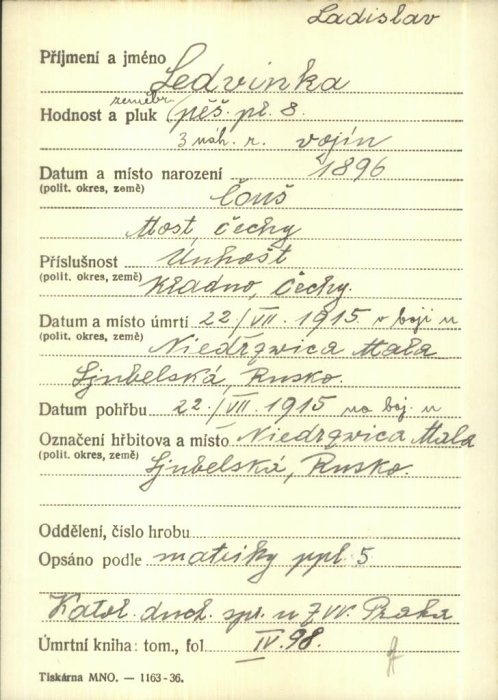 Ladislav
Příjmení a jméno Ledvinka
zeměbr.
Hodnost a pluk pěš. pl. 8.
3 náh. r. vojín
Datum a místo narození 1896
(polit. okres, země) Čouš
Most Čechy
Příslušnost Únhošt
(polit. okres, země) Kladno, Čechy.
Datum a místo úmrtí 22/VII. 1915. v boji u
(polit. okres, země) Niedrzwica Mała
Ljubelská, Rusko.
Datum pohřbu 22./VII. 1915 na boj. u
Označení hřbitova a místo Niedrzwica Mala
(polit. okres, země) Ljubelská, Rusko.
Oddělení, číslo hrobu
Opsáno podle matriky ppl. 5
Katol. duch. spr. u ZVV. Praha
Úmrtní kniha: tom., fol. IV. 98.
Tiskárna MNO. — 1163-36.